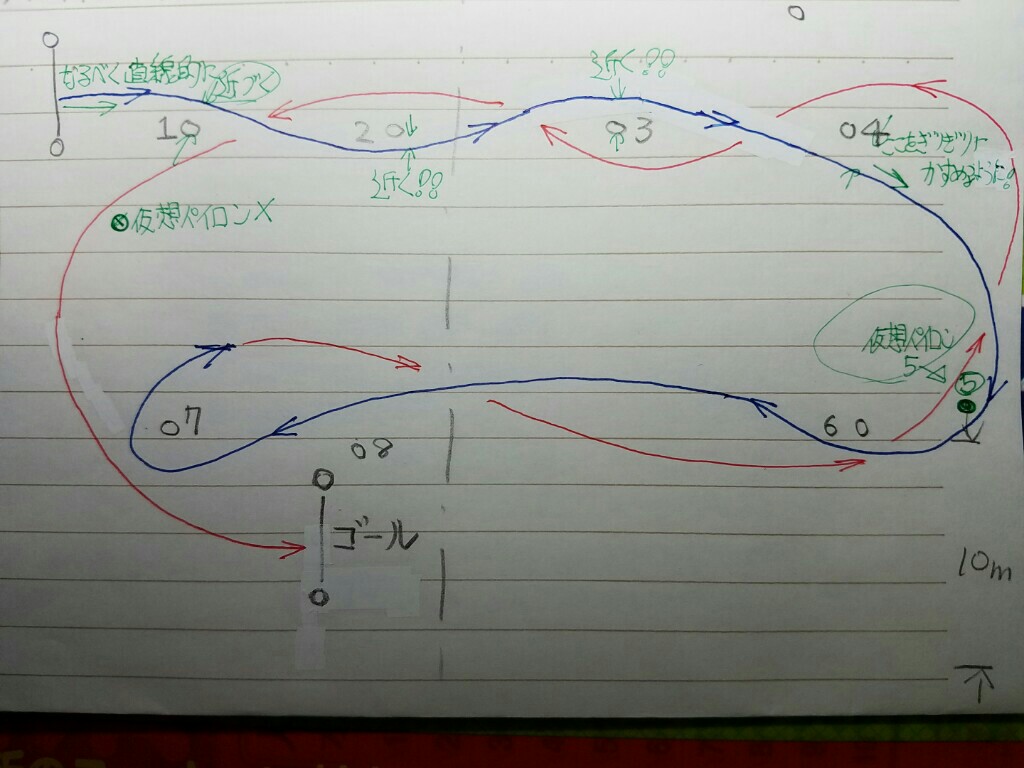 なるべく直線的に近づく
近く!!
1
2
3
4
ここをぎりぎりに
かすめるように。
近く!!
仮想パイロンX
仮想パイロン
5
5
7
6
8
ゴール
10m